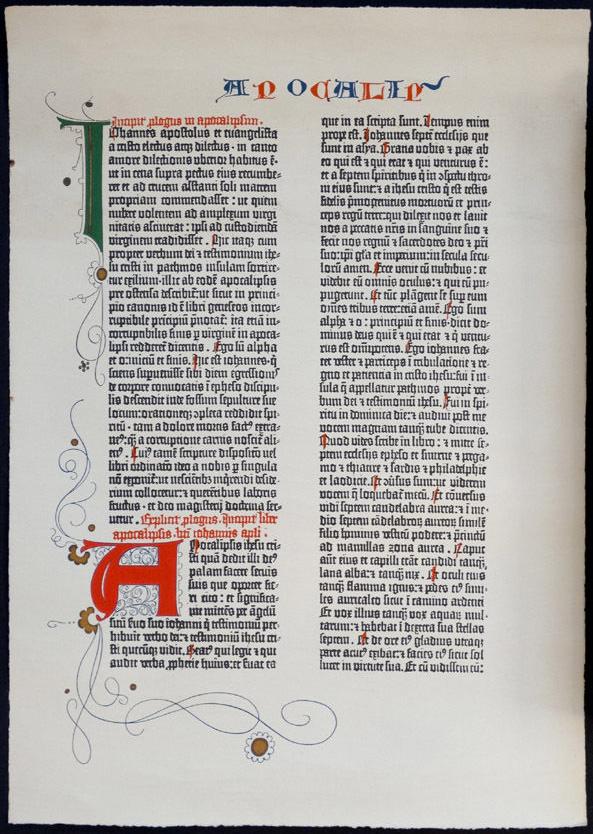 APOCALIP
Incipit plogus in apocalipsim.
Iohannes apostolus et euangelista
a cristo electus atq; dilectus · in tanto
amore dilectionis uberior habitus ē·
ut in cena supra pectus eius recumbe-
ret et ad crucem astanti soli matrem
propriam commendasset : ut quem
nubere volentem ad amplexum virgi
nitatis asciuerat : ipsi ad custodiendā
virginem tradidisset . Hic itaq; cum
propter verbum dei ⁊ testimonium ihe-
su cristi in pathmos insulam sortire-
tur exilium: illic ab eodē apocalipsis
pre ostensa describit̄: ut sicut in princi-
pio canonis id ē libri geneseos incor-
ruptibile principiū pnotat̄: ita etiā in-
corruptibilis finis p virginē in apoca-
lipsi redderet̄ dicentis . Ego sū alpha
et o: iniciū et finis. Hic est iohannes· q̄
sciens supuenisse sibi diem egressionis
de corpore conuocatis ī epheso discipu-
lis descendit inde fossum sepulture sue
locum: orationeq; 9pleta reddidit spi-
ritū · tam a dolore mortis factus extra-
ne9: q̄ a corruptione carnis noscit̄ ali-
en9 . Cui9 tamē scripture dispositō uel
libri ordinatō ideo a nobis p singula
nō exponit̄: ut nescientib; inq̄rendi desi-
rium collocetur: ⁊ querētibus laboris
fructus · et deo magisterij doctrina ser-
uetur . Explicit plogus. Incipit liber
apocalipsis bti iohannis apli ·
Apocalipsis ihesu cri-
sti quā dedit illi de9
palam facere seruis
suis que oportet fie-
ri cito : et significa-
uit mittēs per āgelū
suū seruo suo iohanni q̄ testimoniū per-
hibuit verbo dei: ⁊ testimoniū ihesu cri-
sti quecūq; vidit. Beat9 qui legit ⁊ qui
audit verba pphetie huius: et seruat ea
que in ea scripta sunt. Tempus enim
prope est. Iohannes septē ecclesijs que
sunt in asya. Gratia vobis ⁊ pax ab
eo qui est ⁊ qui erat ⁊ qui venturus ē:
et a septem spiritibus q̄ in 9spectu thro-
ni eius sunt: ⁊ a ihesu cristo q̄ est testis
fidelis pmogenitus mortuorū et prin-
ceps regū terre: qui dilexit nos et lauit
nos a peccatis nr̄is in sanguine suo ⁊
fecit nos regnū ⁊ sacerdotes deo ⁊ pr̄i
suo: ip̄i gl̄ia et imperium: in secula secu-
lorū amen. Ecce venit cū nubibus : et
videbit eū omnis oculus: ⁊ qui eū pu-
pugerunt. Et tūc plāgent se sup eum
om̄es tribus terre: etiā amē. Ego sum
alpha ⁊ o : principiū et finis· dicit do-
minus deus qui ē ⁊ qui erat ⁊ q̄ ventu-
rus est omnipotens. Ego iohannes fra-
ter vester ⁊ particeps ī tribulatione ⁊ re-
gno et patientia in cristo ihesu: fui ī in-
sula q̄ appellatur pathmos propter ver-
bum dei ⁊ testimoniū ihesu. Fui in spi-
ritu in dominica die: ⁊ audiui post me
vocem magnam tanq̄ tube dicentis.
Quod vides scribe in libro : ⁊ mitte se-
ptem ecclesijs epheso et smirne ⁊ perga-
mo ⁊ thiatire ⁊ sardis ⁊ philadelphie
et laodicie. Et 9uersus sum: ut viderem
vocem q̄ loquebat̄ mecū. Et cōuersus
vidi septem candelabra aurea: ⁊ ī me-
dio septem cādelabroꝝ aureoꝝ similē
filio hominis vestitū podere: ⁊ p̄cinctū
ad mamillas zona aurea . Caput
autē eius et capilli erāt candidi tanq̄
lana alba: ⁊ tanq̄ nix . Et oculi eius
tanq̄ flamma ignis: ⁊ pedes ei9 simi-
les auricalco sicut ī camino ardenti
Et vox illius tanq̄ vox aquaꝝ mul-
tarum: ⁊ habebat ī dextera sua stellas
septem . Et de ore ei9 gladius utraq;
parte acut9 exibat: ⁊ facies ei9 sicut sol
lucet in virtute sua. Et cū vidissem eū: